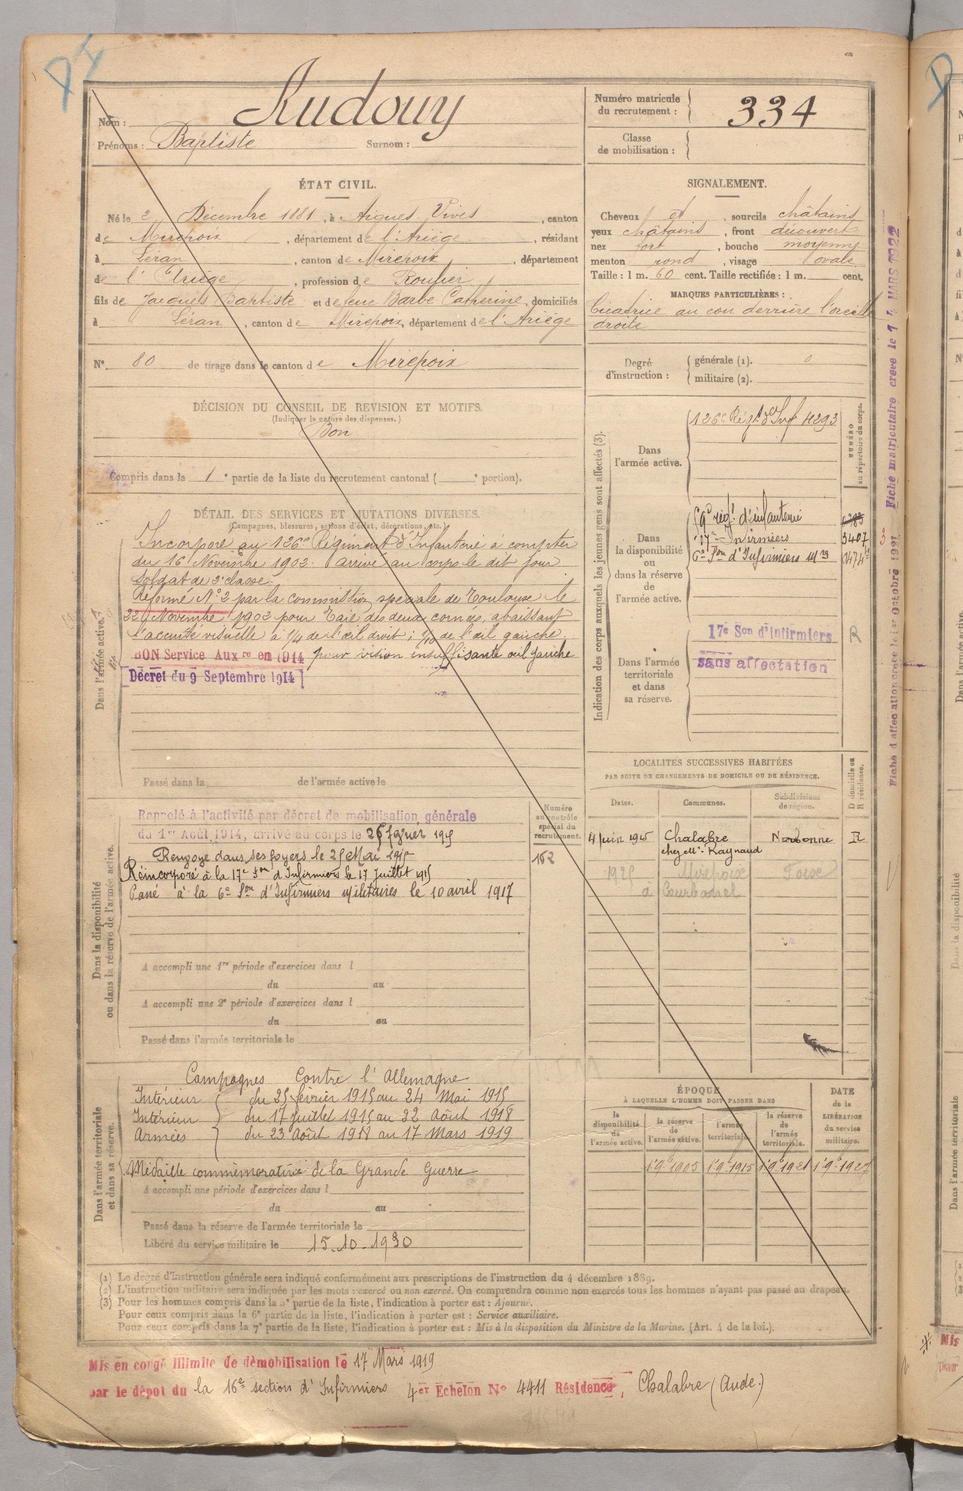 Nom : Rudouy
Prénoms : Baptiste Surnom :
Numéro matricule du recrutement : 334
Classe de mobilisation :
ÉTAT CIVIL.
Né le 2 Décembre 1881, à Aigues Vives, canton
de Mirepoix, département de l'Ariège, résidant
à Léran, canton de Mirepoix, département
de l'Ariège, profession de Roulier
fils de Jacques Baptiste et de feue Barbe Catherine, domiciliés
à Léran, canton de Mirepoix, département de l'Ariège
N° 80 de tirage dans le canton de Mirepoix
SIGNALEMENT.
Cheveux et, sourcils châtains
yeux châtains, front découvert
nez fort, bouche moyenne
menton rond, visage ovale
Taille : 1 m. 60 cent. Taille rectifiée : 1 m. cent.
MARQUES PARTICULIÈRES :
Cicatrice au cou derrière l'oreille
droite
Degré d'instruction : générale (1).
militaire (2).
DÉCISION DU CONSEIL DE REVISION ET MOTIFS.
(Indiquer la nature des dispenses.)
Bon
Compris dans la 1e partie de la liste du recrutement cantonal ( e portion).
DÉTAIL DES SERVICES ET MUTATIONS DIVERSES.
(Campagnes, blessures, actions d'éclat, décorations, etc.)
Dans l'armée active.
Incorporé au 126e Régiment d'Infanterie à compter
du 16 Novembre 1902. Arrivé au corps le dit jour
Soldat de 2e classe.
Réformé N° 2 par la commission spéciale de Toulouse le
22 Novembre 1902 pour Taie des deux cornées, abaissant
l'acuité visuelle à 1/4 de l'œil droit ; 1/10 de l'œil gauche
BON Service Auxre en 1914 pour vision insuffisante œil gauche
Décret du 9 Septembre 1914
Passé dans la de l'armée active le
Indication des corps auxquels les jeunes gens sont affectés (3).
NUMÉRO au répertoire du corps.
Dans l'armée active.
126e Régt d'Inf 4293
Dans la disponibilité ou dans la réserve de l'armée active.
59e régt d'infanterie
17e Infirmiers 5407
6e Son d'Infirmiers Mres
Dans l'armée territoriale et dans sa réserve.
17e Son d'Infirmiers
sans affectation
Fiche matriculaire créée le 14 MARS 1922
LOCALITÉS SUCCESSIVES HABITÉES
PAR SUITE DE CHANGEMENTS DE DOMICILE OU DE RÉSIDENCE.
Dates. Communes. Subdivisions de région. D domicile ou R résidence.
4 juin 1915 Chalabre Narbonne R
chez Mr Raynaud
1925 Mirepoix Foix
à Courbadel
Dans la disponibilité ou dans la réserve de l'armée active.
Numéro au contrôle spécial du recrutement.
162
Rappelé à l'activité par décret de mobilisation générale
du 1er Août 1914, arrivé au corps le 25 février 1915
Renvoyé dans ses foyers le 25 Mai 1915
Réincorporé à la 17e Son d'Infirmiers le 17 Juillet 1915
Passé à la 6e Son d'Infirmiers Militaires le 10 avril 1917
A accompli une 1re période d'exercices dans l
du au
A accompli une 2e période d'exercices dans l
du au
Passé dans l'armée territoriale le
Dans l'armée territoriale et dans sa réserve.
Campagnes Contre l'Allemagne
Intérieur du 25 février 1915 au 24 Mai 1915
Intérieur du 17 juillet 1915 au 22 Août 1918
Armées du 23 Août 1918 au 17 Mars 1919
Médaille commémorative de la Grande Guerre
A accompli une période d'exercices dans l
du au
Passé dans la réserve de l'armée territoriale le
Libéré du service militaire le 15.10.1930
ÉPOQUE
À LAQUELLE L'HOMME DOIT PASSER DANS
la disponibilité de l'armée active. la réserve de l'armée active. l'armée territoriale. la réserve de l'armée territoriale. DATE de la LIBÉRATION du service militaire.
1 9b 1905 1 9b 1915 1 9b 1921 1 9b 1927
(1) Le degré d'instruction générale sera indiqué conformément aux prescriptions de l'instruction du 4 décembre 1889.
(2) L'instruction militaire sera indiquée par les mots : exercé ou non exercé. On comprendra comme non exercés tous les hommes n'ayant pas passé au drapeau.
(3) Pour les hommes compris dans la 5e partie de la liste, l'indication à porter est : Ajourné.
Pour ceux compris dans la 6e partie de la liste, l'indication à porter est : Service auxiliaire.
Pour ceux compris dans la 7e partie de la liste, l'indication à porter est : Mis à la disposition du Ministre de la Marine. (Art. 4 de la loi.).
Mis en congé illimité de démobilisation le 17 Mars 1919
par le dépôt du la 16e section d'Infirmiers 4er Echelon N° 4411 Résidence, Chalabre (Aude.)